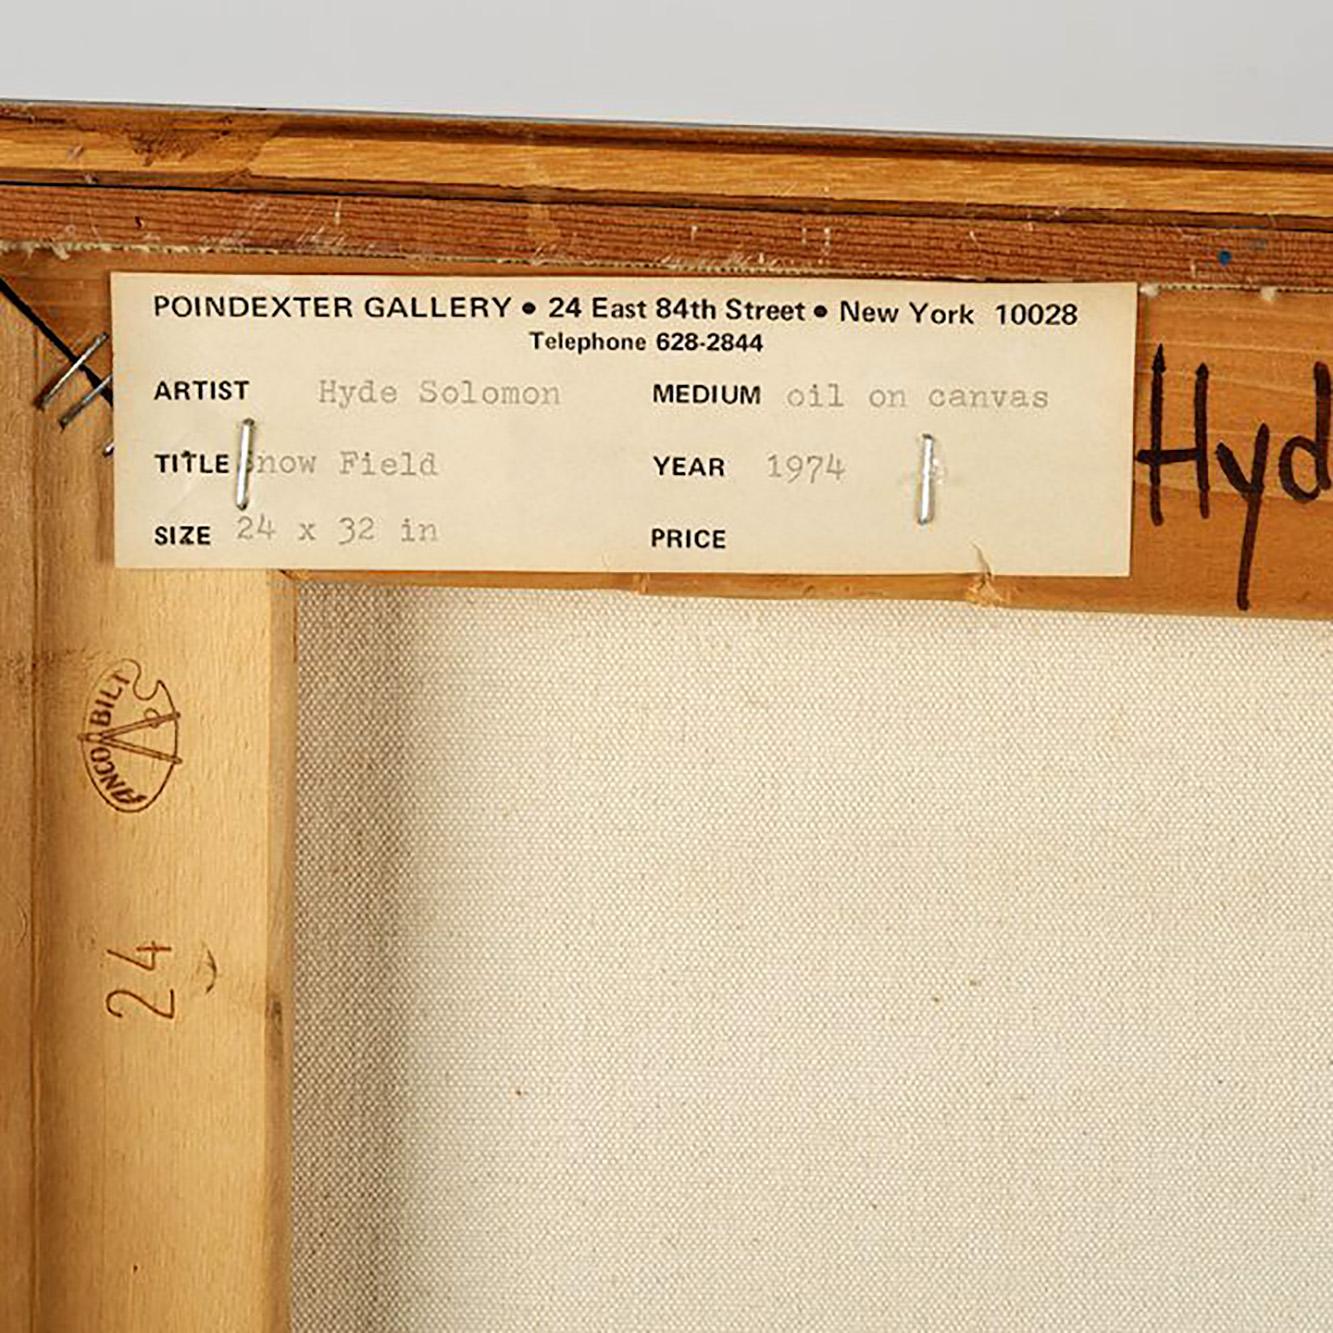 POINDEXTER GALLERY • 24 East 84th Street • New York 10028
Telephone 628-2844
ARTIST Hyde Solomon MEDIUM oil on canvas
TITLE Snow Field YEAR 1974
SIZE 24 x 32 in PRICE
Hyd
ANCO BILT
24